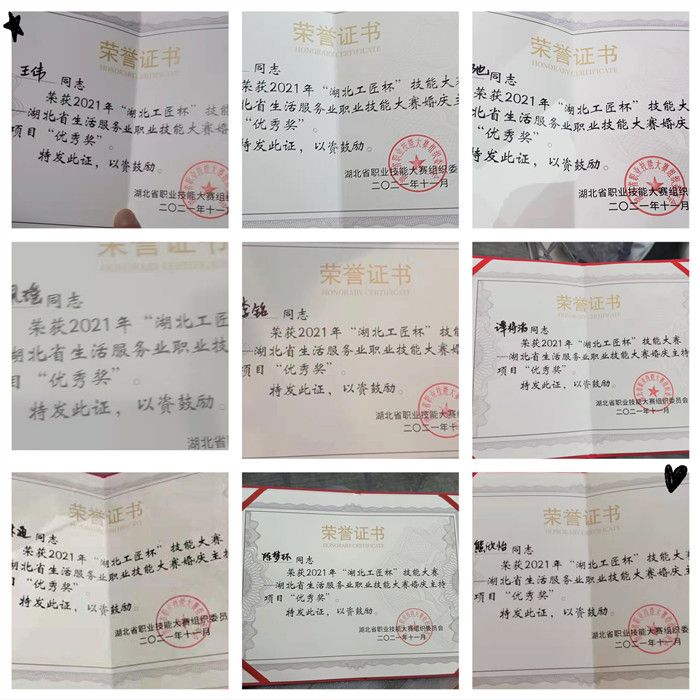 荣誉证书
HONORARY CERTIFICATE
王伟 同志
荣获2021年“湖北工匠杯”技能
—湖北省生活服务业职业技能大赛
项目“优秀奖”。
特发此证，以资鼓励。
湖北省职业技能大赛组织
二〇二一年十一
荣誉证书
HONORARY CERTIFICATE
同志
荣获2021年“湖北工匠杯”技能大赛
北省生活服务业职业技能大赛婚庆主
“优秀奖”。
特发此证，以资鼓励。
湖北省职业技能大赛组织委
二〇二一年十一月
荣誉证书
HONORARY CERTIFICATE
同志
荣获2021年“湖北工匠杯”技能大
北省生活服务业职业技能大赛婚庆
“优秀奖”。
特发此证，以资鼓励。
湖北省职业技能大赛组织
二〇二一年十一
荣誉证书
同志
荣获2021年“湖北工匠
湖北省生活服务业职业技
目“优秀奖”。
特发此证，以资鼓励。
湖北省
荣誉证书
HONORARY CERTIFICATE
同志
荣获2021年“湖北工匠杯”技能
湖北省生活服务业职业技能大赛
目“优秀奖”。
特发此证，以资鼓励。
湖北省职业技能大赛组
二〇二一年十
荣誉证书
HONORARY CERTIFICATE
同志
荣获2021年“湖北工匠杯”技能大赛
—湖北省生活服务业职业技能大赛婚庆主持
项目“优秀奖”。
特发此证，以资鼓励。
湖北省职业技能大赛组织委员会
二〇二一年十一月
荣誉证书
同志
荣获2021年“湖北工匠杯”技能大赛
湖北省生活服务业职业技能大赛婚庆主
目“优秀奖”。
特发此证，以资鼓励。
湖北省职业技能大赛组织委员
二〇二一年十一月
荣誉证书
HONORARY CERTIFICATE
陈梦环 同志
荣获2021年“湖北工匠杯”技能大赛
—湖北省生活服务业职业技能大赛婚庆主持
项目“优秀奖”。
特发此证，以资鼓励。
湖北省职业技能大赛组织委员会
二〇二一年十一月
荣誉证书
HONORARY CERTIFICATE
熊欣怡 同志
荣获2021年“湖北工匠杯”技能大
—湖北省生活服务业职业技能大赛婚庆
项目“优秀奖”。
特发此证，以资鼓励。
湖北省职业技能大赛组织委
二〇二一年十一月